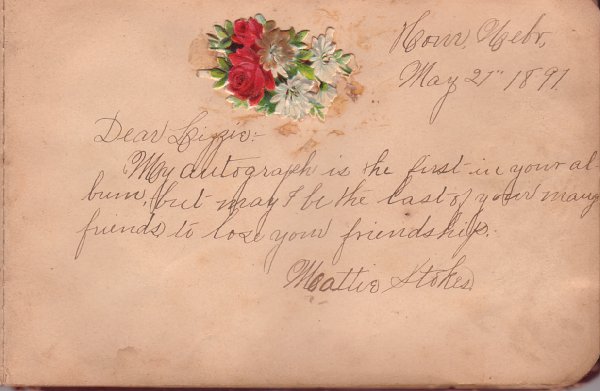 Nebr,
May 21" 1891.
Dear Lizzie:-
My autograph is the first in your al-
bum, but may I be the last of your many
friends to lose your friendship.
Mattie Stokes